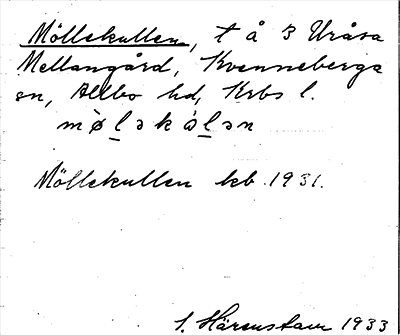 Möllekullen, t å 3 Uråsa
Mellangård, Kvenneberga
sn, Allbo hd, Krbs l.
mø̀l̲əkàl̲ən
Möllekullen kb 1931.
S. Härenstam 1933